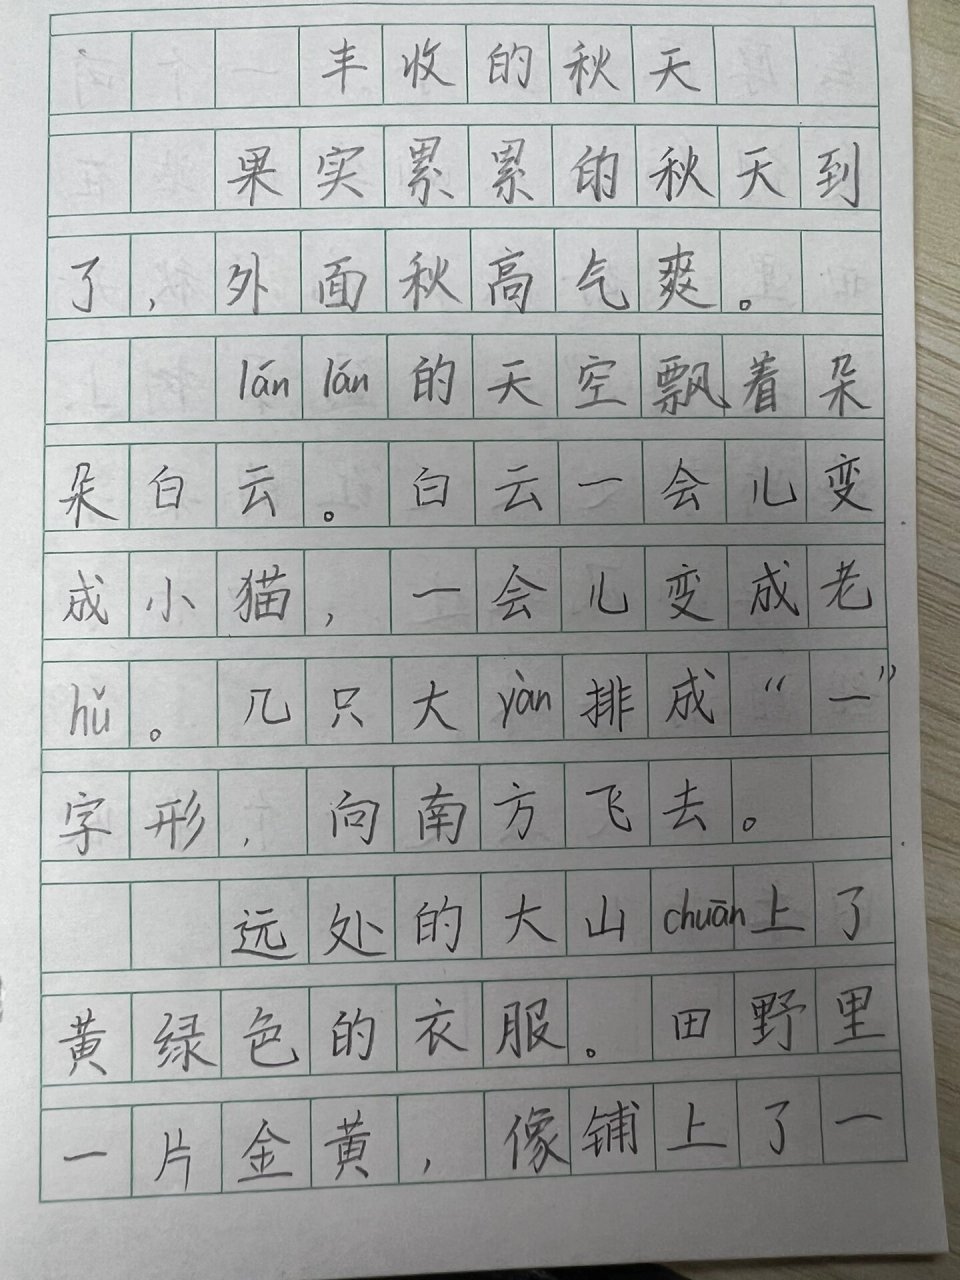 丰收的秋天
果实累累的秋天到
了，外面秋高气爽。
lán lán的天空飘着朵
朵白云。白云一会儿变
成小猫，一会儿变成老
hǔ。几只大yàn排成“一”
字形，向南方飞去。
远处的大山chuān上了
黄绿色的衣服。田野里
一片金黄，像铺上了一